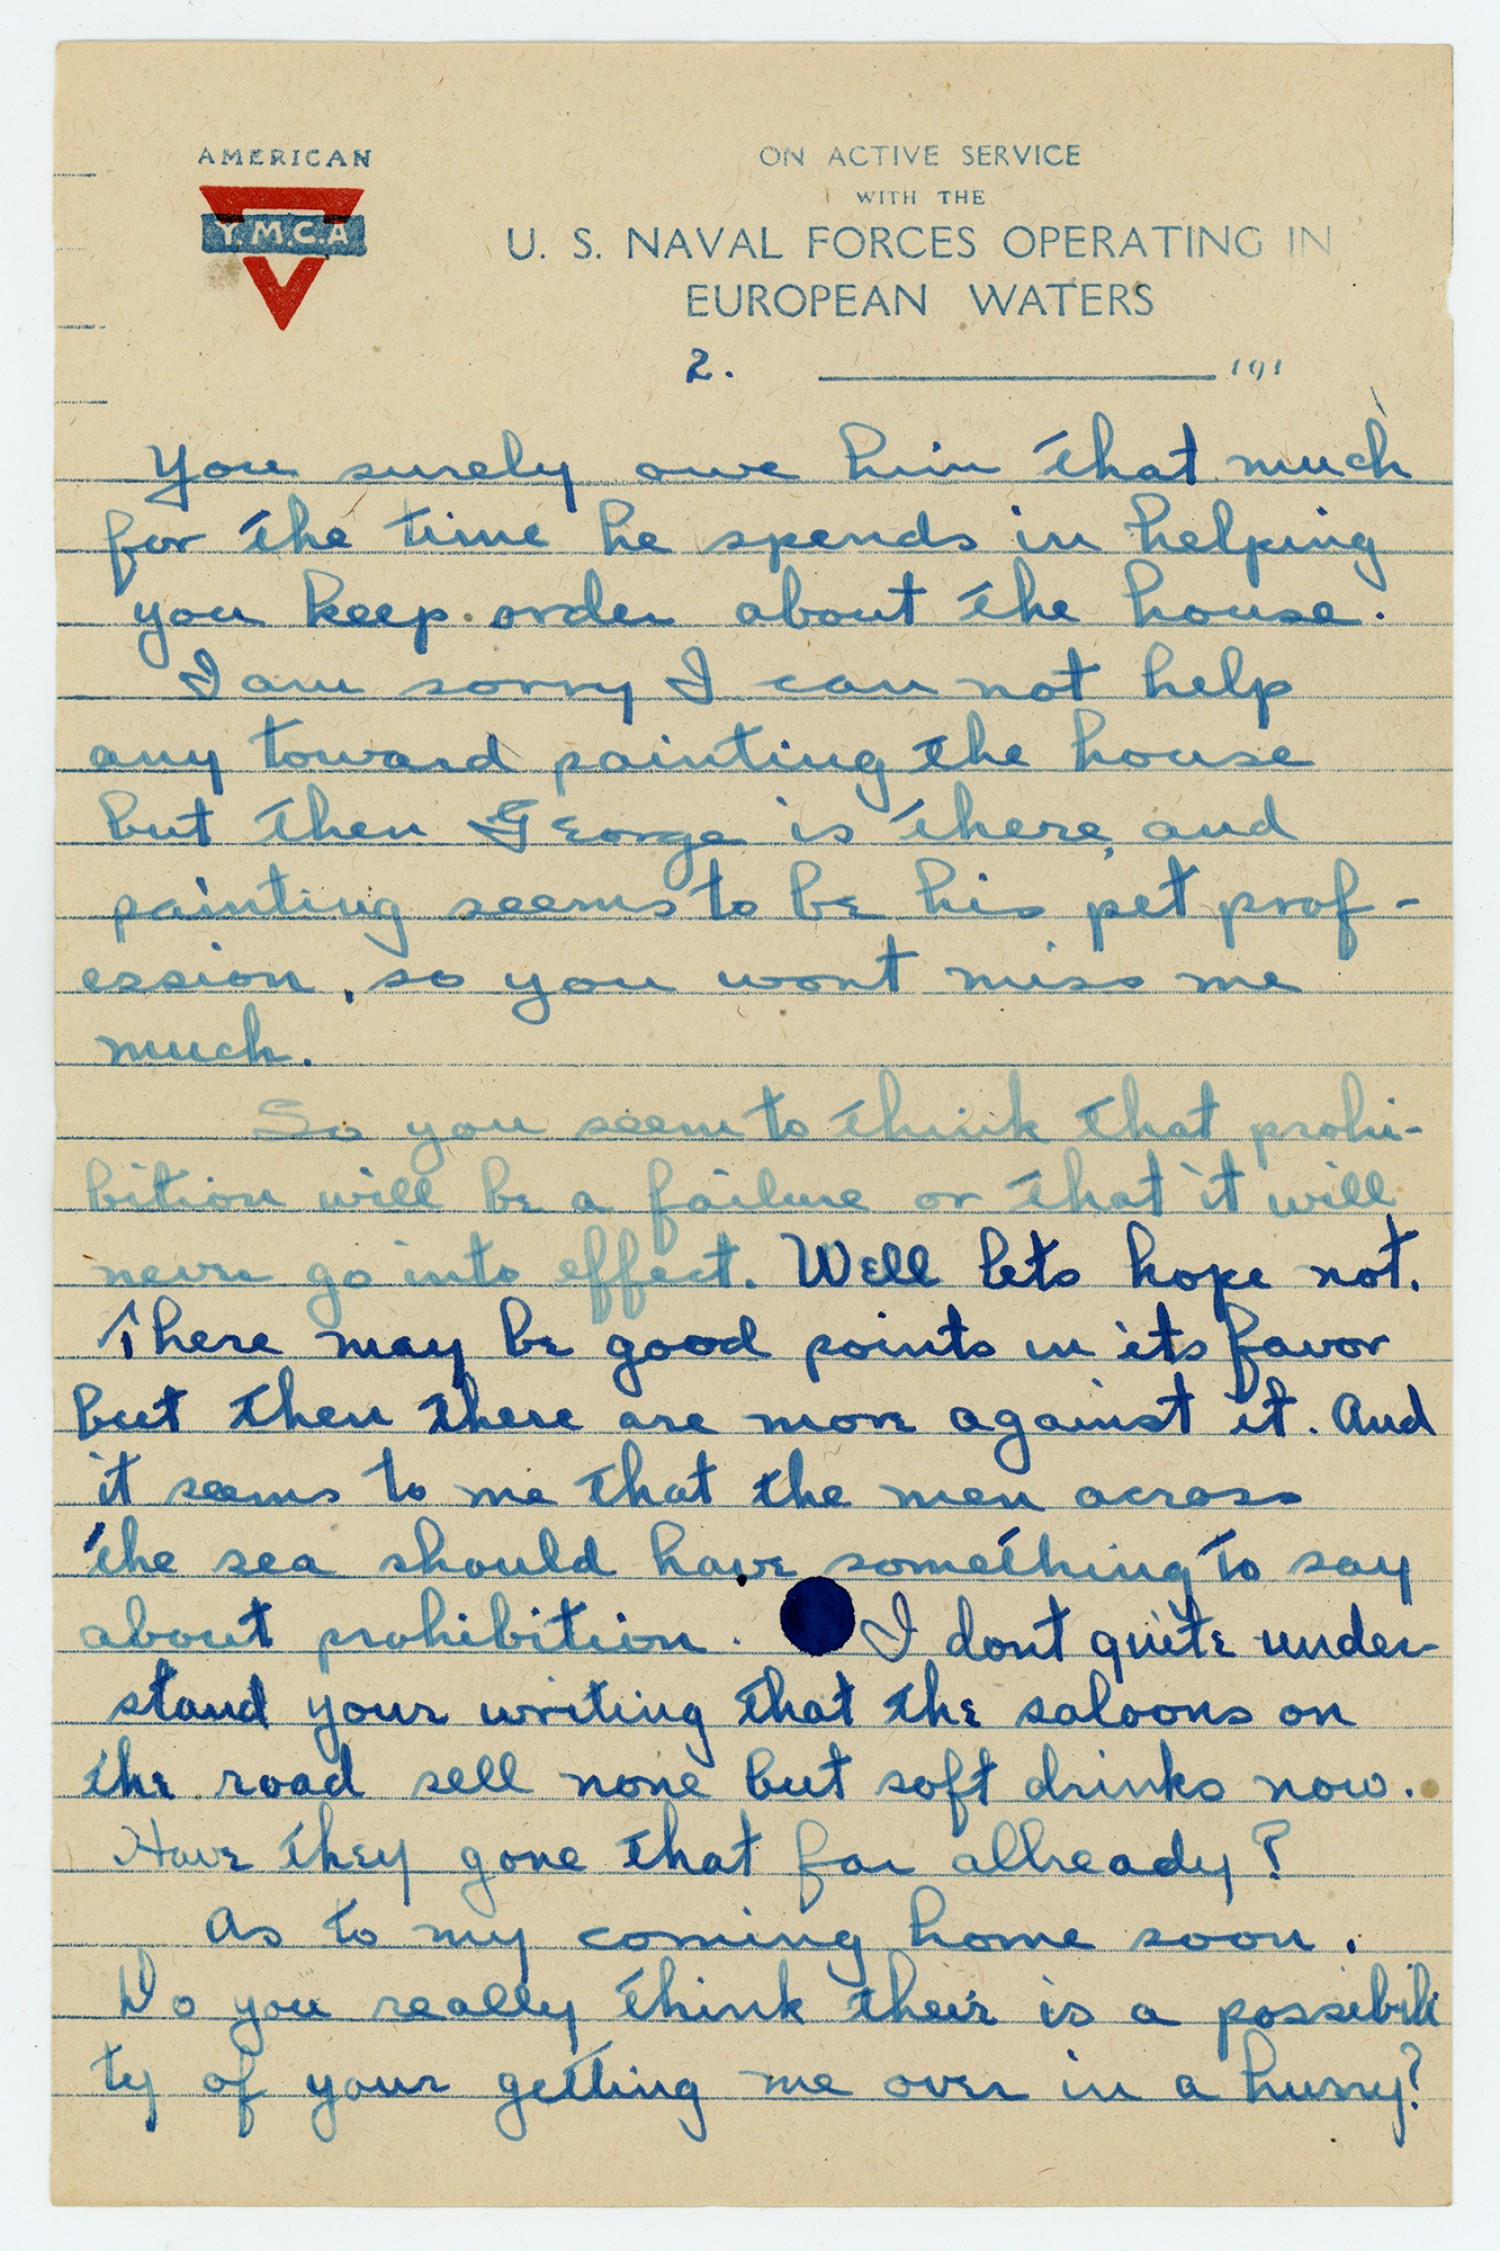 AMERICAN
Y.M.C.A
ON ACTIVE SERVICE
WITH THE
U. S. NAVAL FORCES OPERATING IN
EUROPEAN WATERS
2. 191
You surely owe him that much
for the time he spends in helping
you keep order about the house.
I am sorry I can not help
any toward painting the house
but then George is there, and
painting seems to be his pet prof-
ession, so you wont miss me
much.
So you seem to think that prohi-
bition will be a failure or that it will
never go into effect. Well lets hope not.
There may be good points in its favor
but then there are more against it. And
it seems to me that the men across
the sea should have something to say
about prohibition. I dont quite under-
stand your writing that the saloons on
the road sell none but soft drinks now.
Have they gone that far allready?
As to my coming home soon.
Do you really think their is a possibili
ty of your getting me over in a hurry?